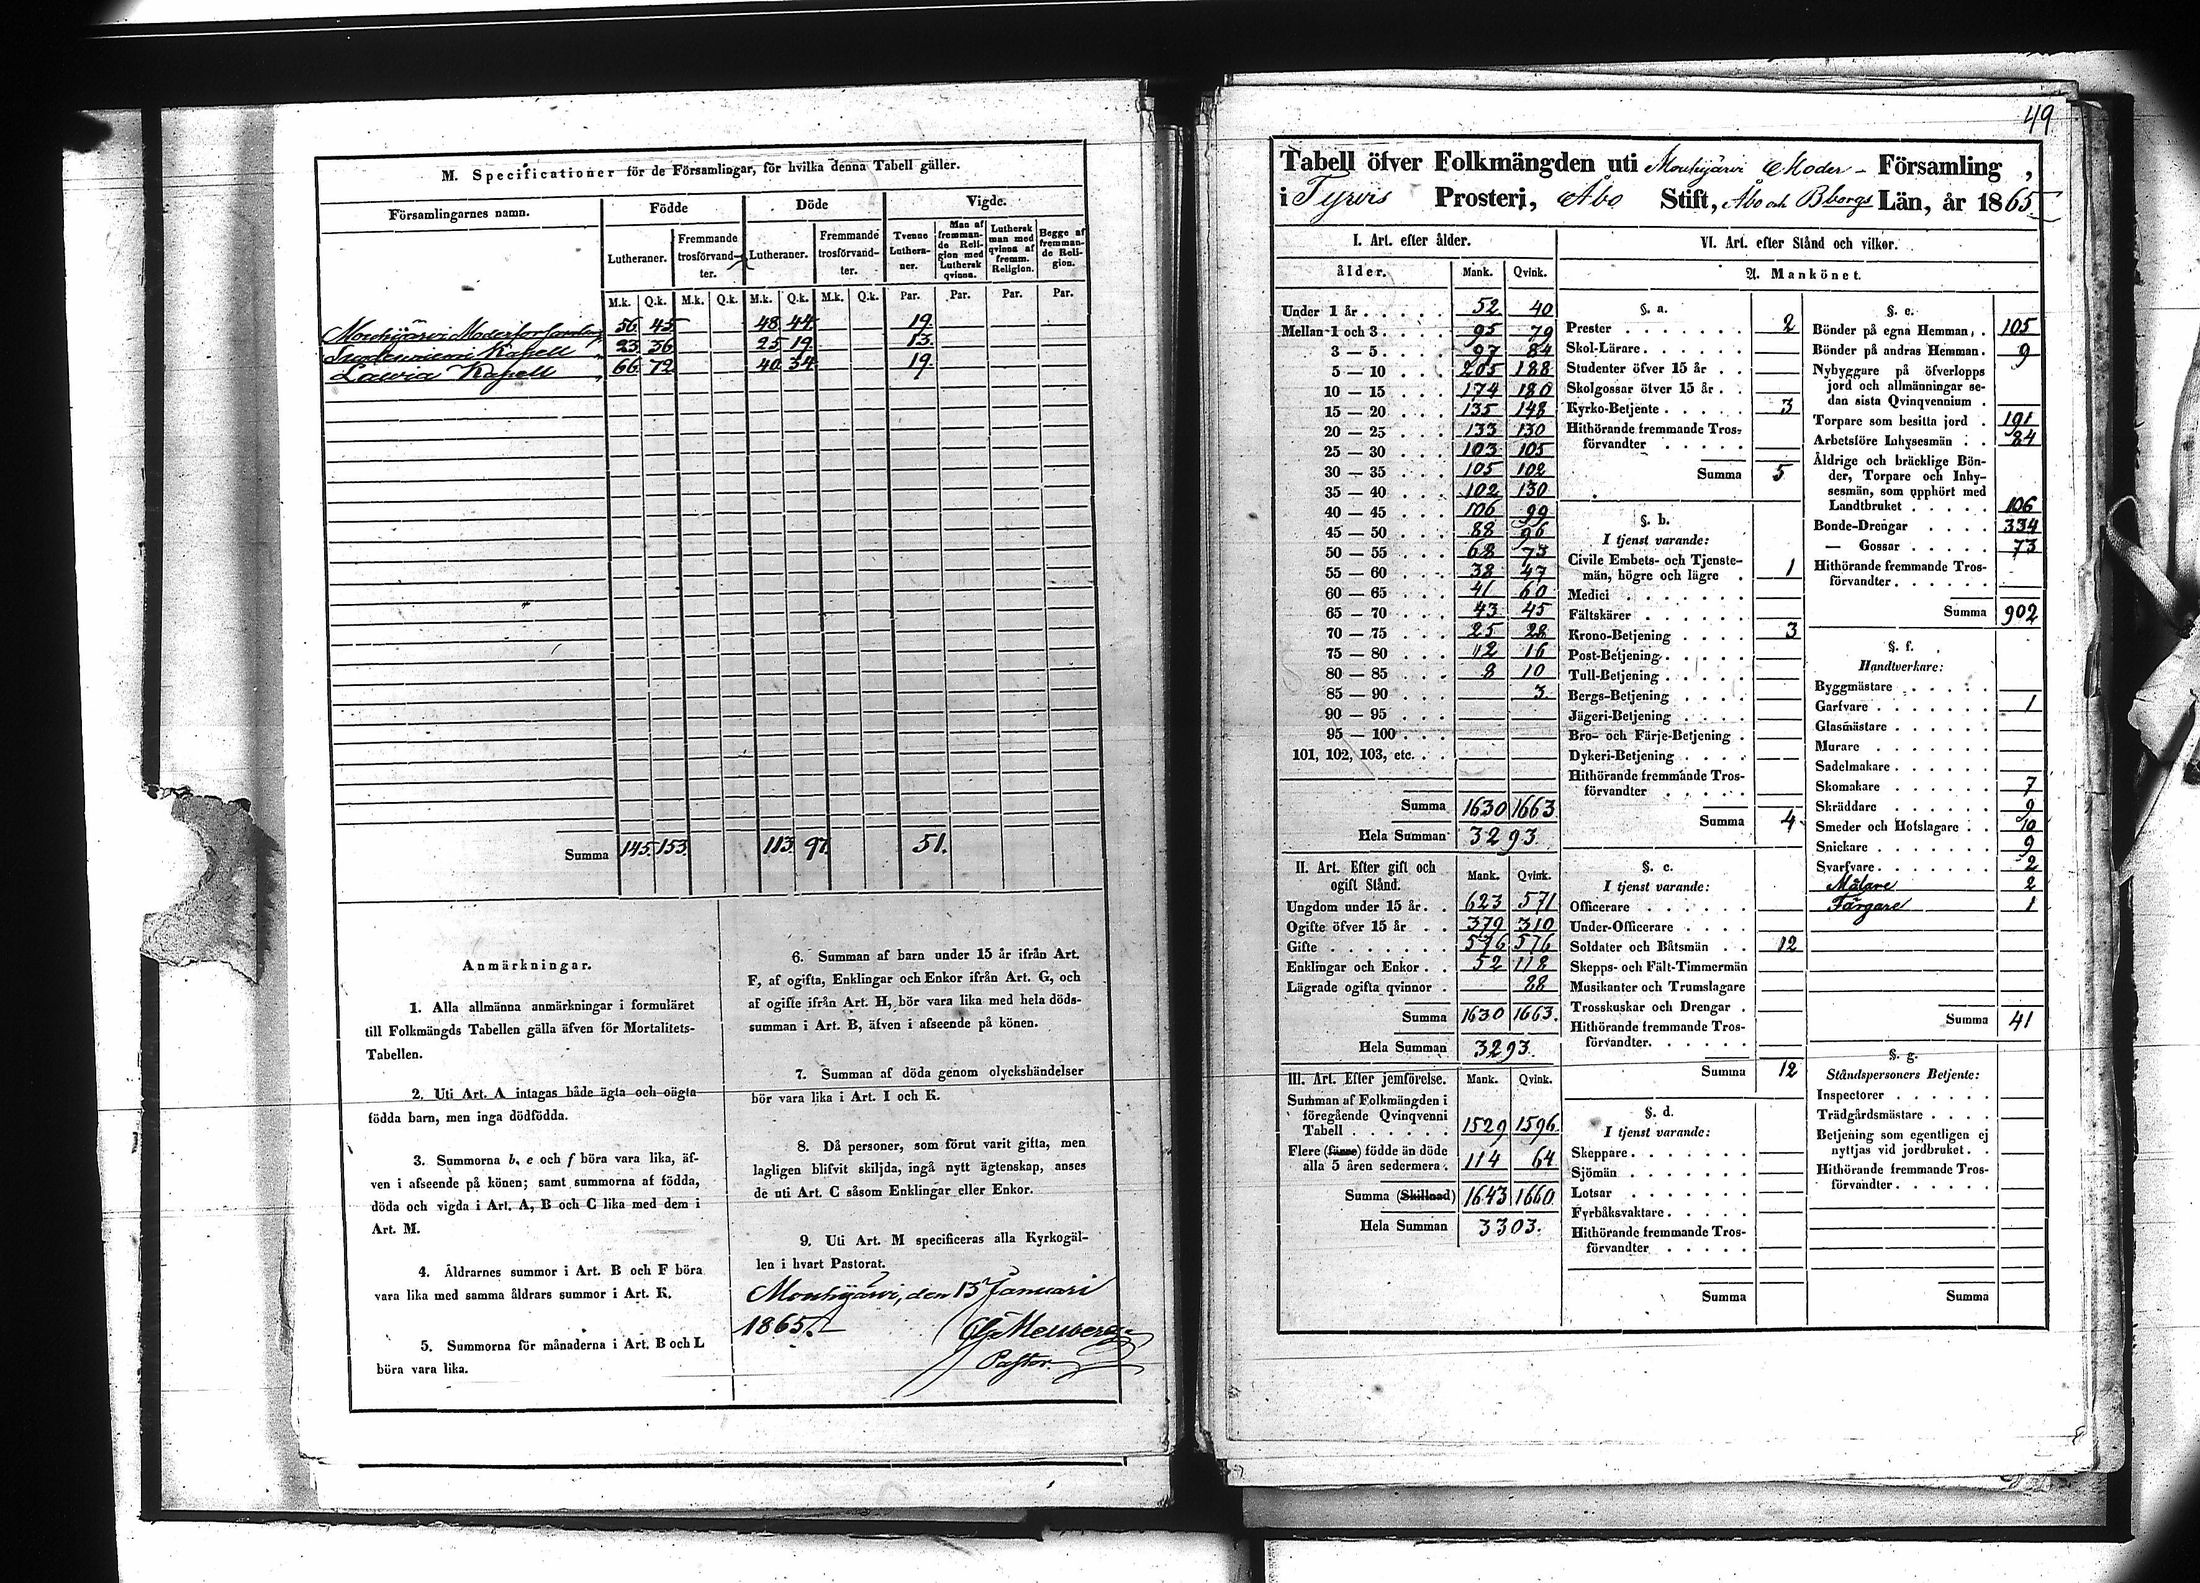 M. Specificationer för de Församlingar, för hvilka denna Tabell gäller.
Församlingarnes namn. Födde Döde Vigde.
Lutheraner. Fremmande trosförvandter. Lutheraner. Fremmande trosförvandter. Tvenne Lutheraner. Man af fremmande Religion med Luthersk qvinna. Luthersk man med qvinna af fremm. Religion. Begge af fremmande Religion.
M.k. Q.k. M.k. Q.k. M.k. Q.k. M.k. Q.k. Par. Par. Par. Par.
Mouhijärvi Moderförsamling 56 45 48 44 19.
Suodenniemi Kapell " 23 36 25 19 13.
Lawia Kapell " 66 72 40 34 19.
Summa 145 153 113 97 51.
Anmärkningar.
1. Alla allmänna anmärkningar i formuläret
till Folkmängds Tabellen gälla äfven för Mortalitets-
Tabellen.
2. Uti Art. A intagas både ägta och oägta
födda barn, men inga dödfödda.
3. Summorna b, e och f böra vara lika, äf-
ven i afseende på könen; samt summorna af födda,
döda och vigda i Art. A, B och C lika med dem i
Art. M.
4. Åldrarnes summor i Art. B och F böra
vara lika med samma åldrars summor i Art. K.
5. Summorna för månaderna i Art. B och L
böra vara lika.
6. Summan af barn under 15 år ifrån Art.
F, af ogifta, Enklingar och Enkor ifrån Art. G, och
af ogifte ifrån Art. H, bör vara lika med hela döds-
summan i Art. B, äfven i afseende på könen.
7. Summan af döda genom olyckshändelser
bör vara lika i Art. I och K.
8. Då personer, som förut varit gifta, men
lagligen blifvit skiljda, ingå nytt ägtenskap, anses
de uti Art. C såsom Enklingar eller Enkor.
9. Uti Art. M specificeras alla Kyrkogäl-
len i hvart Pastorat.
Mouhijärvi, den 13 Januari
1865.
Pastor.
49
Tabell öfver Folkmängden uti Mouhijärvi Moder- Församling,
i Tyrvis Prosteri, Åbo Stift, Åbo och Bborgs Län, år 1865
I. Art. efter ålder.
ålder. Mank. Qvink.
Under 1 år . . . . . 52 40
Mellan 1 och 3 . . . . 95 79
3 — 5 . . . . 97 84
5 — 10 . . . 205 188
10 — 15 . . . 174 180
15 — 20 . . . 135 148
20 — 25 . . . 133 130
25 — 30 . . . 103 105
30 — 35 . . . 105 102
35 — 40 . . . 102 130
40 — 45 . . . 106 99
45 — 50 . . . 88 96
50 — 55 . . . 68 73
55 — 60 . . . 38 47
60 — 65 . . . 41 60
65 — 70 . . . 43 45
70 — 75 . . . 25 28
75 — 80 . . . 12 16
80 — 85 . . . 8 10
85 — 90 . . . 3.
90 — 95 . . .
95 — 100 . . .
101, 102, 103, etc. . .
Summa 1630 1663
Hela Summan 3293.
II. Art. Efter gift och ogift Stånd. Mank. Qvink.
Ungdom under 15 år . . 623 571
Ogifte öfver 15 år . . . 379 310
Gifte . . . . . . . 576 576
Enklingar och Enkor . . 52 118
Lägrade ogifta qvinnor . 88
Summa 1630 1663.
Hela Summan 3293.
III. Art. Efter jemförelse. Mank. Qvink.
Summan af Folkmängden i
föregående Qvinqvenni
Tabell . . . . . . 1529 1596.
Flere (färre) födde än döde
alla 5 åren sedermera . 114 64
Summa (Skillnad) 1643 1660
Hela Summan 3303.
VI. Art. efter Stånd och vilkor.
A. Mankönet.
§. a.
Prester . . . . . . . 2
Skol-Lärare . . . . . .
Studenter öfver 15 år . .
Skolgossar öfver 15 år . .
Kyrko-Betjente . . . . . 3
Hithörande fremmande Tros-
förvandter . . . . .
Summa 5
§. b.
I tjenst varande:
Civile Embets- och Tjenste-
män, högre och lägre . 1
Medici . . . . . . .
Fältskärer . . . . . .
Krono-Betjening . . . . 3
Post-Betjening . . . . .
Tull-Betjening . . . . .
Bergs-Betjening . . . .
Jägeri-Betjening . . . .
Bro- och Färje-Betjening .
Dykeri-Betjening . . . .
Hithörande fremmande Tros-
förvandter . . . . .
Summa 4.
§. c.
I tjenst varande:
Officerare . . . . . .
Under-Officerare . . . .
Soldater och Båtsmän . . 12
Skepps- och Fält-Timmermän
Musikanter och Trumslagare
Trosskuskar och Drengar .
Hithörande fremmande Tros-
förvandter. . . . . .
Summa 12
§. d.
I tjenst varande:
Skeppare . . . . . . .
Sjömän . . . . . . .
Lotsar . . . . . . .
Fyrbåksvaktare . . . . .
Hithörande fremmande Tros-
förvandter . . . . .
Summa
§. e.
Bönder på egna Hemman . . 105
Bönder på andras Hemman . 9
Nybyggare på öfverlopps
jord och allmänningar se-
dan sista Qvinqvennium .
Torpare som besitta jord . 191
Arbetsföre Inhysesmän . . 84
Åldrige och bräcklige Bön-
der, Torpare och Inhy-
sesmän, som upphört med
Landtbruket . . . . . 106
Bonde-Drengar . . . . 334
— Gossar . . . . . 73
Hithörande fremmande Tros-
förvandter . . . . . .
Summa 902
§. f.
Handtverkare:
Byggmästare . . . . .
Garfvare . . . . . . . 1
Glasmästare . . . . . .
Murare . . . . . . .
Sadelmakare . . . . . .
Skomakare . . . . . . 7
Skräddare . . . . . . 9
Smeder och Hofslagare . . 10
Snickare . . . . . . . 9
Svarfvare . . . . . . . 2
Målare 2
Färgare 1
Summa 41
§. g.
Ståndspersoners Betjente:
Inspectorer . . . . . .
Trädgårdsmästare . . . .
Betjening som egentligen ej
nyttjas vid jordbruket . .
Hithörande fremmande Tros-
förvandter . . . . . .
Summa